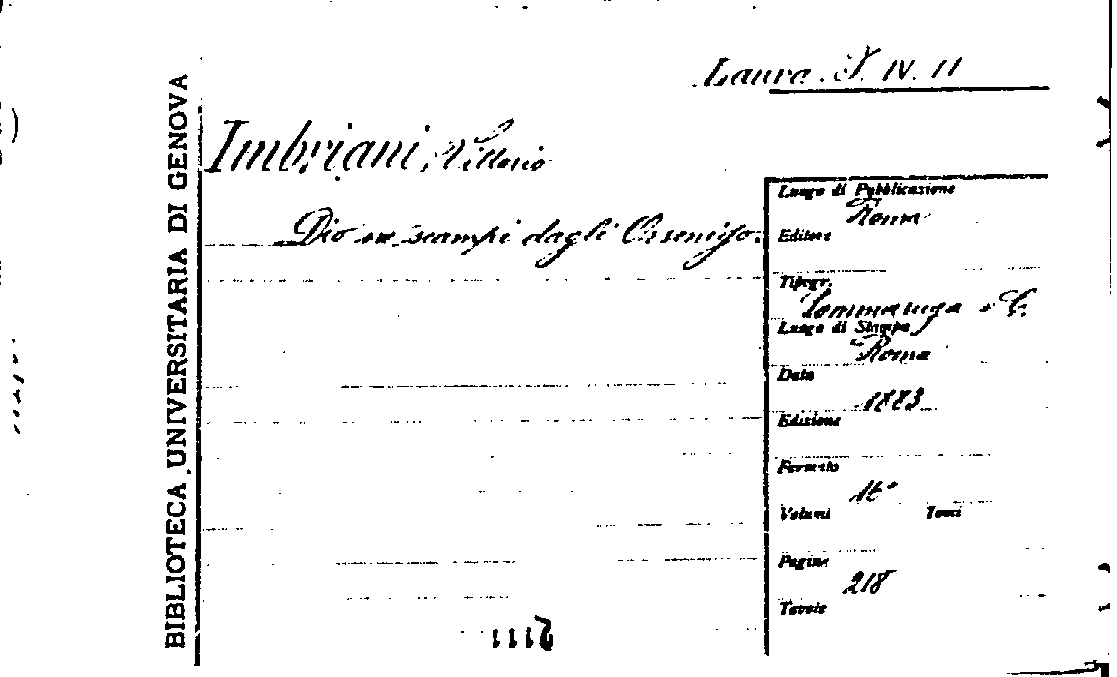 Laura. T. IV. 11
BIBLIOTECA UNIVERSITARIA DI GENOVA
Imbriani, Vittorio
Dio ne scampi dagli Orsenigo.
Luogo di Pubblicazione
Roma
Editore
Tipogr.
Sommaruga e C.
Luogo di Stampa
Roma
Data
1883
Edizione
Formato
16°
Volumi Tomi
Pagine
218
Tavole